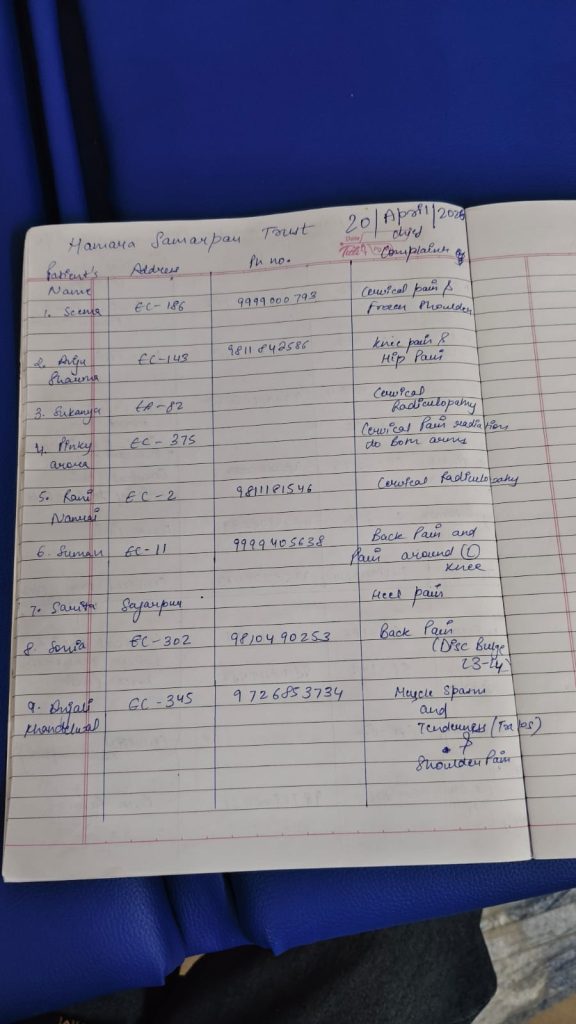 Hamara Samarpan Trust 20/April/202
Patient's Name Address Ph no. Chief Complaint
1. Seema EC-186 9999000793 Cervical pain &
Frozen Shoulder
2. Anju EC-143 9811842586 Knee pain &
Sharma Hip Pain
3. Sukanya EA-82 Cervical
Radiculopathy
4. Pinky EC-375 Cervical Pain radiation
arora to both arms
5. Rani EC-2 9811181546 Cervical Radiculopathy
6. Suman EC-11 9999405638 Back Pain and
Pain around (L)
Knee
7. Sarita Heel pain
8. Sonia EC-302 9810490253 Back Pain
(Disc Bulge
L3-L4)
9. Anjali GC-345 9726853734 Muscle Spasm
Khandelwal and
Tenderness
&
Shoulder Pain